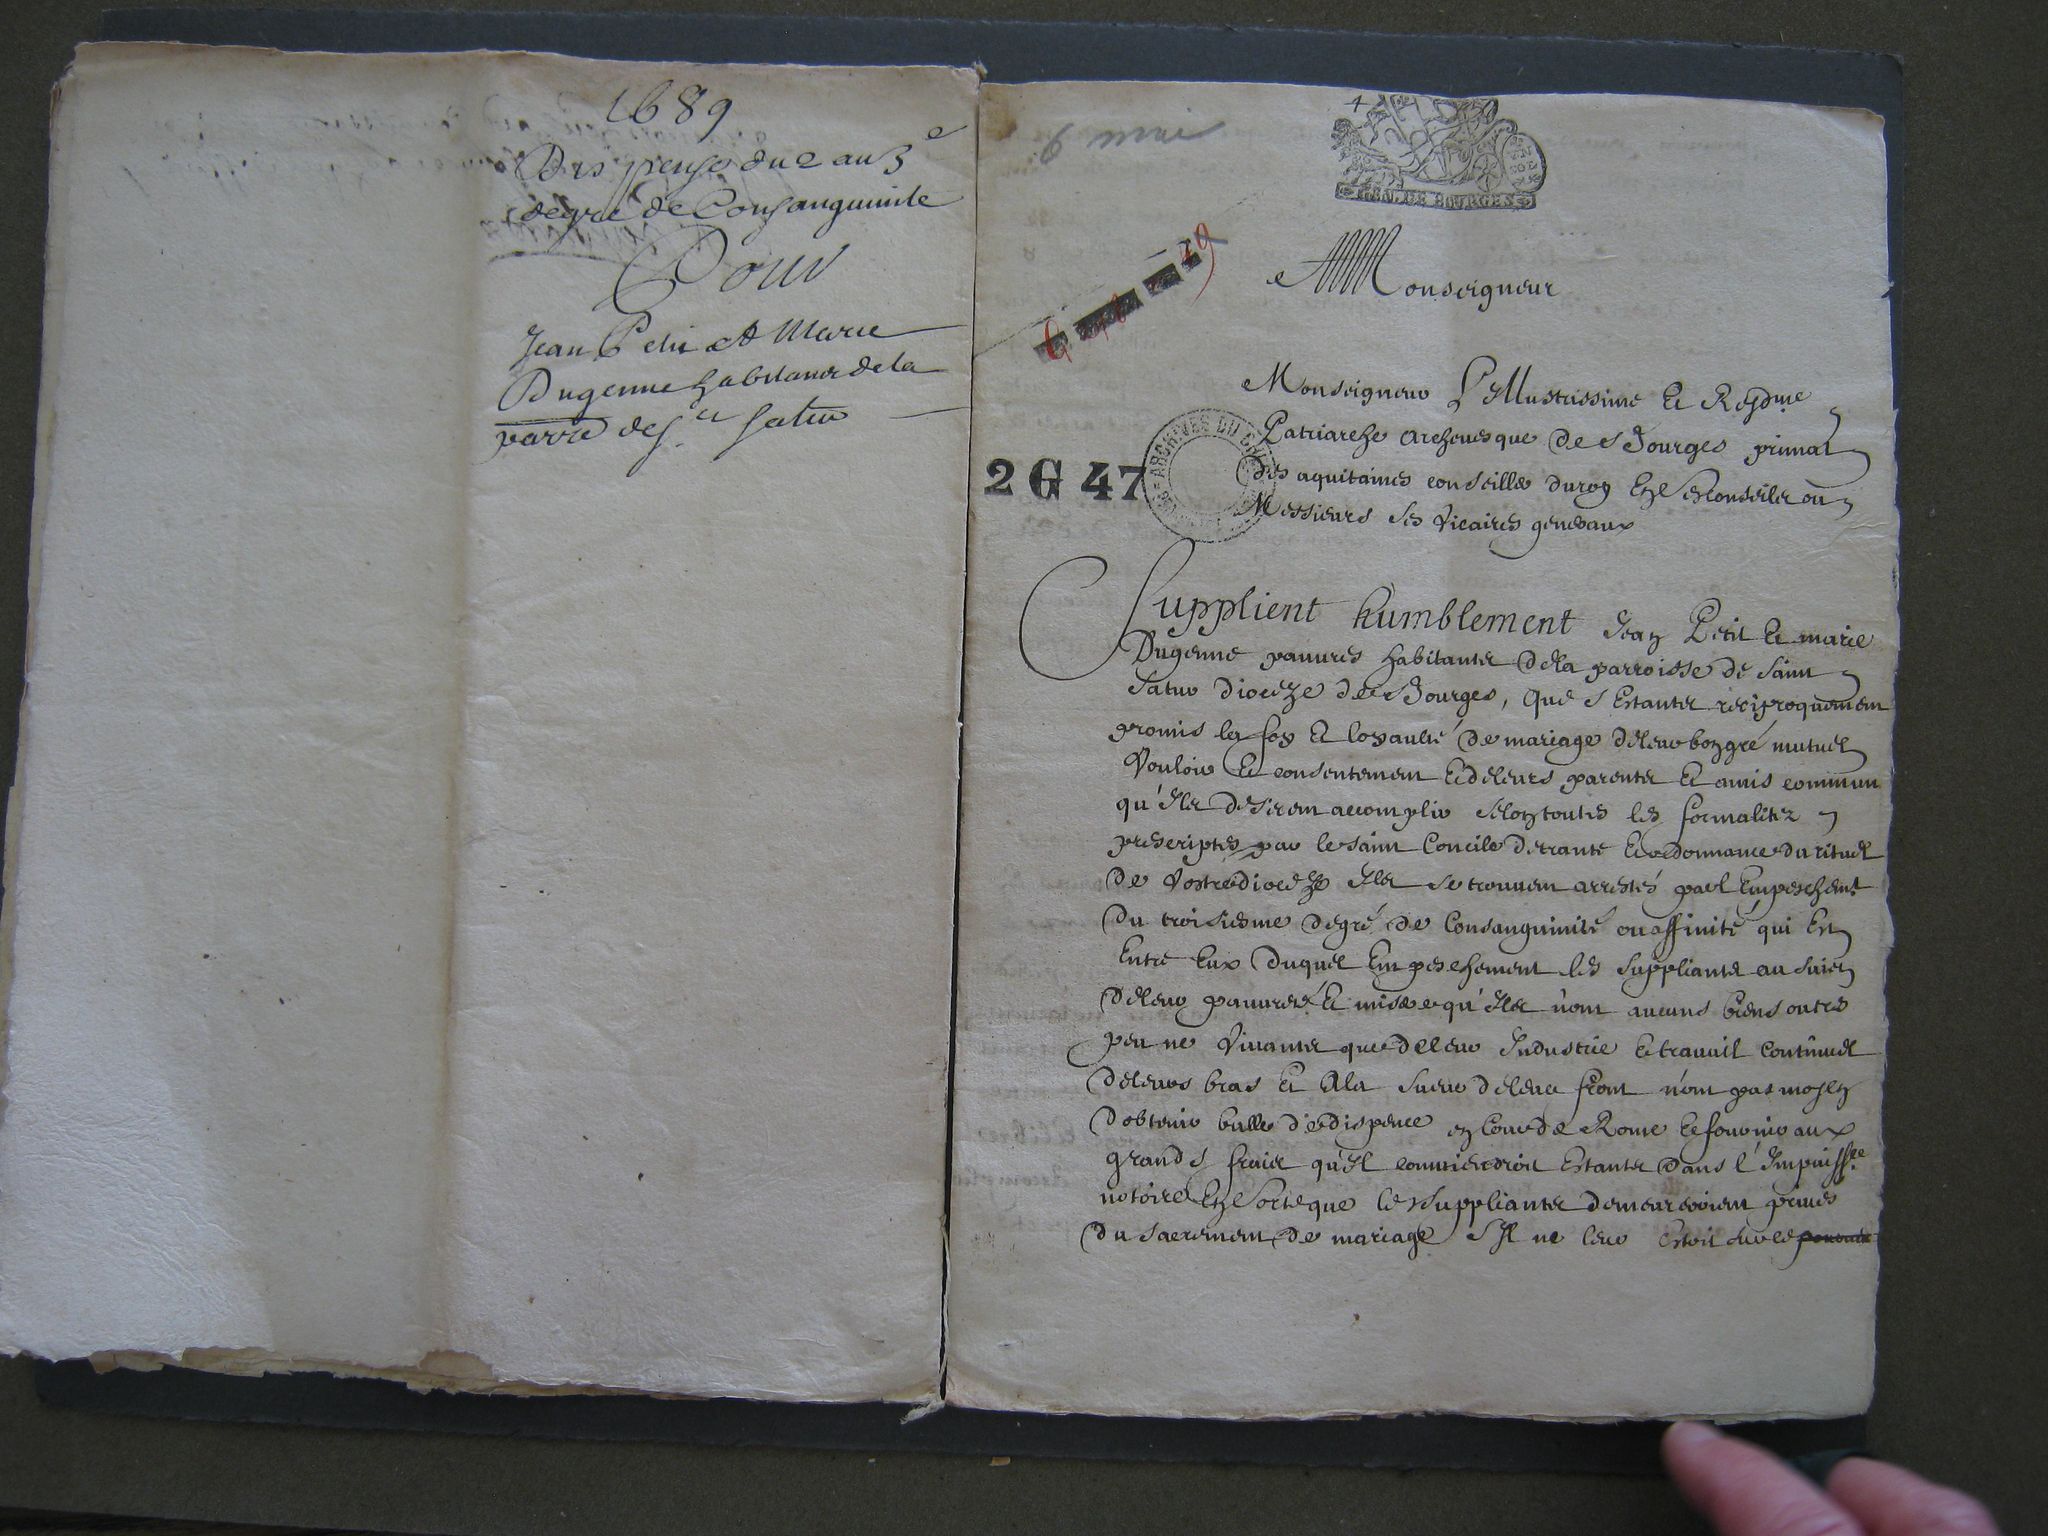 1689
Dispense du 2 au 3e
degre de Consanguinite
Pour
Jean Petit et Marie
Dugenne habitans de la
parre de Ste Satur
6 mai
4
GENAL DE BOURGES
Monseigneur
Monseigneur L'Illustrissime Et Resdme
Patriarche archevesque De Bourges primat
des aquitaines conseiller du roy En ses conseils ou
Messieurs ses Vicaires generaux
2 G 47
ARCHIVES DU CHER
Supplient humblement Jean Petit Et marie
Dugenne pauvres habitants De la parroisse de saint
satur Dioceze de Bourges, que s'Estants reciproquement
promis la foy Et loyaulté de mariage de leur bon gré mutuel
Vouloir Et consentement Et de leurs parents Et amis commun
qu'Ils desirent accomplir selon toutes les formalitez
prescriptes par le saint Concile de trante Et ordonnance du rituel
de Vostre dioceze Ils se trouvent arrestés par l'Empeschemt
du troisiesme degré de Consanguinité ou affinité qui Est
Entre Eux duquel Empeschement les suppliants au suiet
de leur pauvreté Et misere qu'Ils n'ont aucuns biens ou tres
peu ne Vivants que de leur Industrie Et travail Continuel
de leurs bras Et A la sueur de leur front n'ont pas moyen
d'obtenir bulle de dispence en Cour de Rome Et fournir aux
grands fraix qu'Il conviendroit Estants dans l'Impuissce
notoire En sorte que les suppliants demeureroient privés
du sacrement de mariage s'Il ne leur Estoit sur ce